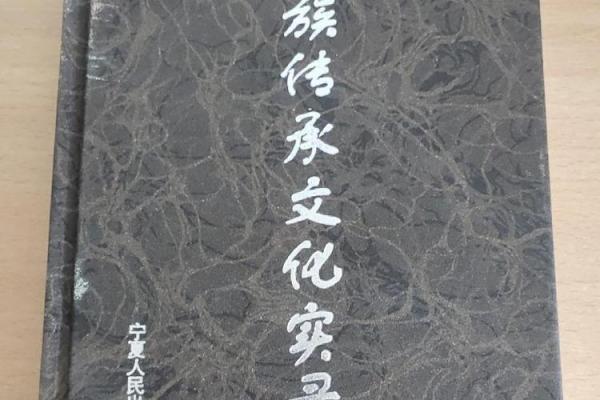 族传承文化实
宁夏人民